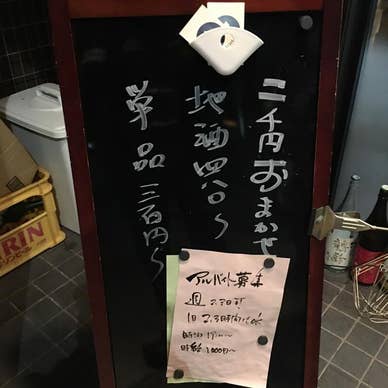 二千円おまかせ
地酒四八〇〜
単品三百円〜
アルバイト募集
週2.3日〜
1日2.3時間〜OK
時給1000円〜
KIRIN